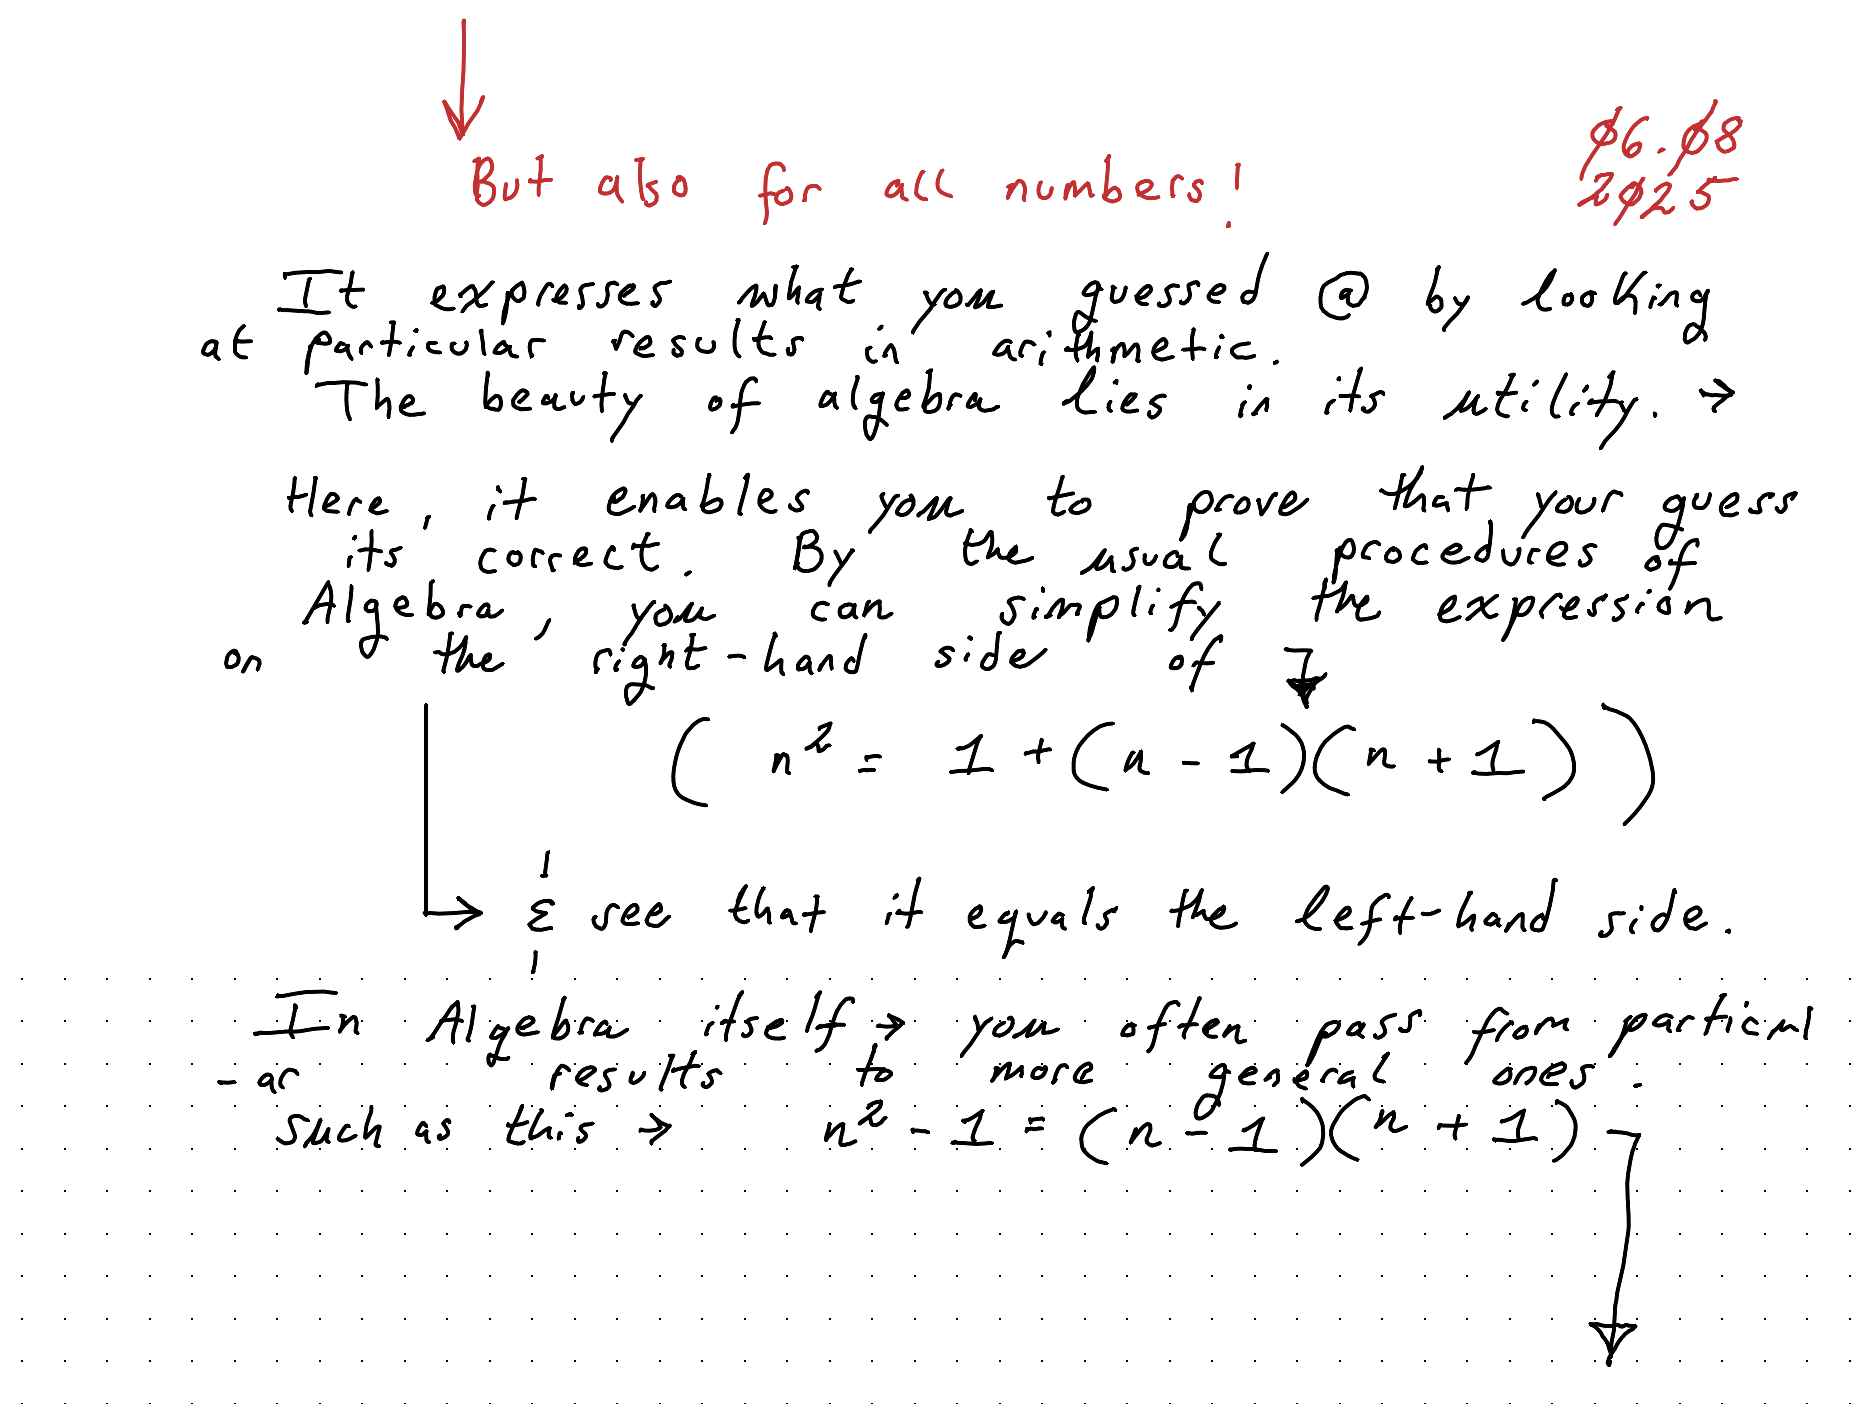 But also for all numbers!
06.08
2025
It expresses what you guessed @ by looking
at particular results in arithmetic.
The beauty of algebra lies in its utility. →
Here, it enables you to prove that your guess
its correct. By the usual procedures of
Algebra, you can simplify the expression
on the right-hand side of
( n² = 1 + (n - 1)(n + 1) )
→ & see that it equals the left-hand side.
In Algebra itself → you often pass from particul
-ar results to more general ones.
Such as this → n² - 1 = (n - 1)(n + 1)